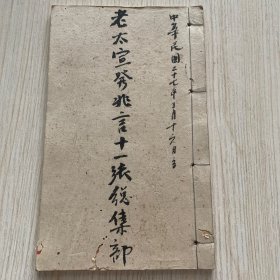 中華民国二十七年三月十六日立
老太宣発兆言十一張総集部